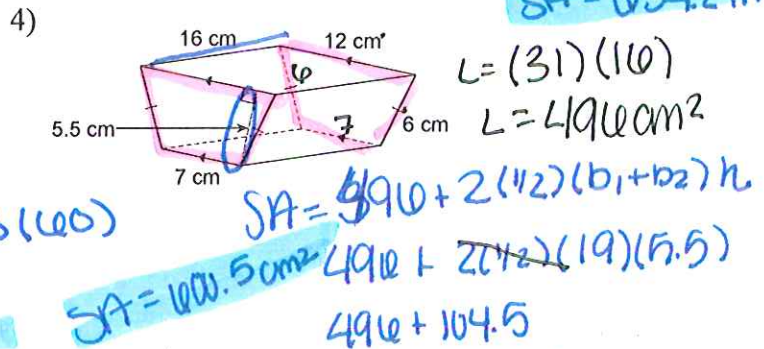 4)
16 cm
12 cm
6
5.5 cm
7
6 cm
7 cm
L = (31)(16)
L = 496 cm²
(60)
SA = 496 + 2(1/2)(b₁+b₂)h
496 + 2(1/2)(19)(5.5)
496 + 104.5
SA = 600.5 cm²